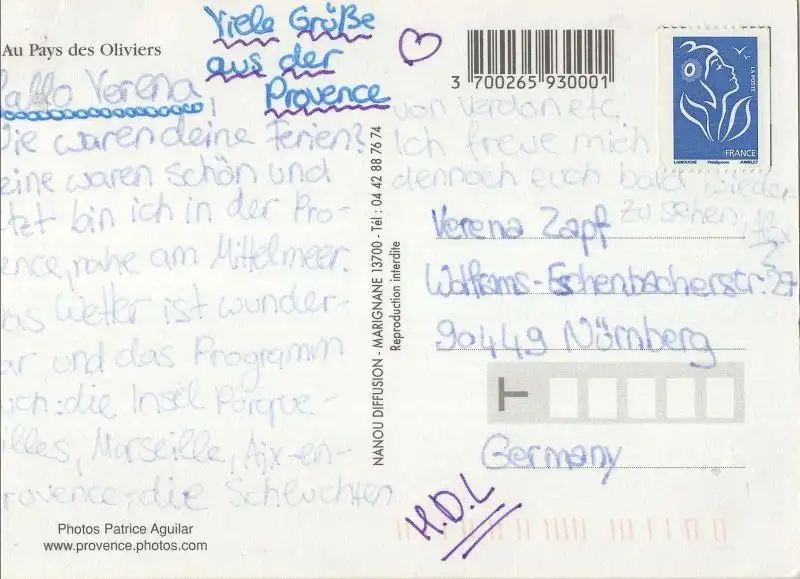 Au Pays des Oliviers
Viele Grüße
aus der
Provence
3 700265 930001
LA POSTE
FRANCE
LAMOUCHE Phil@poste JUMELET
Hallo Verena,
Wie waren deine Ferien?
eine waren schön und
tzt bin ich in der Pro-
ence, nahe am Mittelmeer.
as Wetter ist wunder-
ar und das Programm
uch: die Insel Porque-
illes, Marseille, Aix-en-
rovence, die Schluchten
von Verdon etc.
Ich freue mich
dennoch euch bald wieder-
zu sehen,
NANOU DIFFUSION - MARIGNANE 13700 - Tél : 04 42 88 76 74
Reproduction interdite
Verena Zapf
Wolframs-Eschenbacherstr. 27
90449 Nürnberg
Germany
H.D.L
Photos Patrice Aguilar
www.provence.photos.com